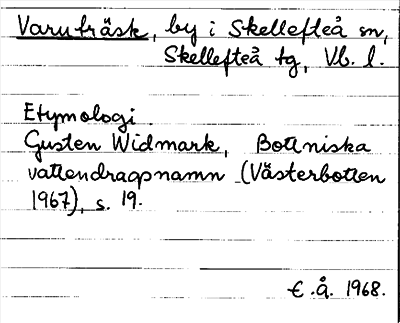 Varuträsk, by i Skellefteå sn,
Skellefteå tg, Vb. l.
Etymologi.
Gusten Widmark, Bottniska
vattendragsnamn (Västerbotten
1967), s. 19.
E.Å. 1968.